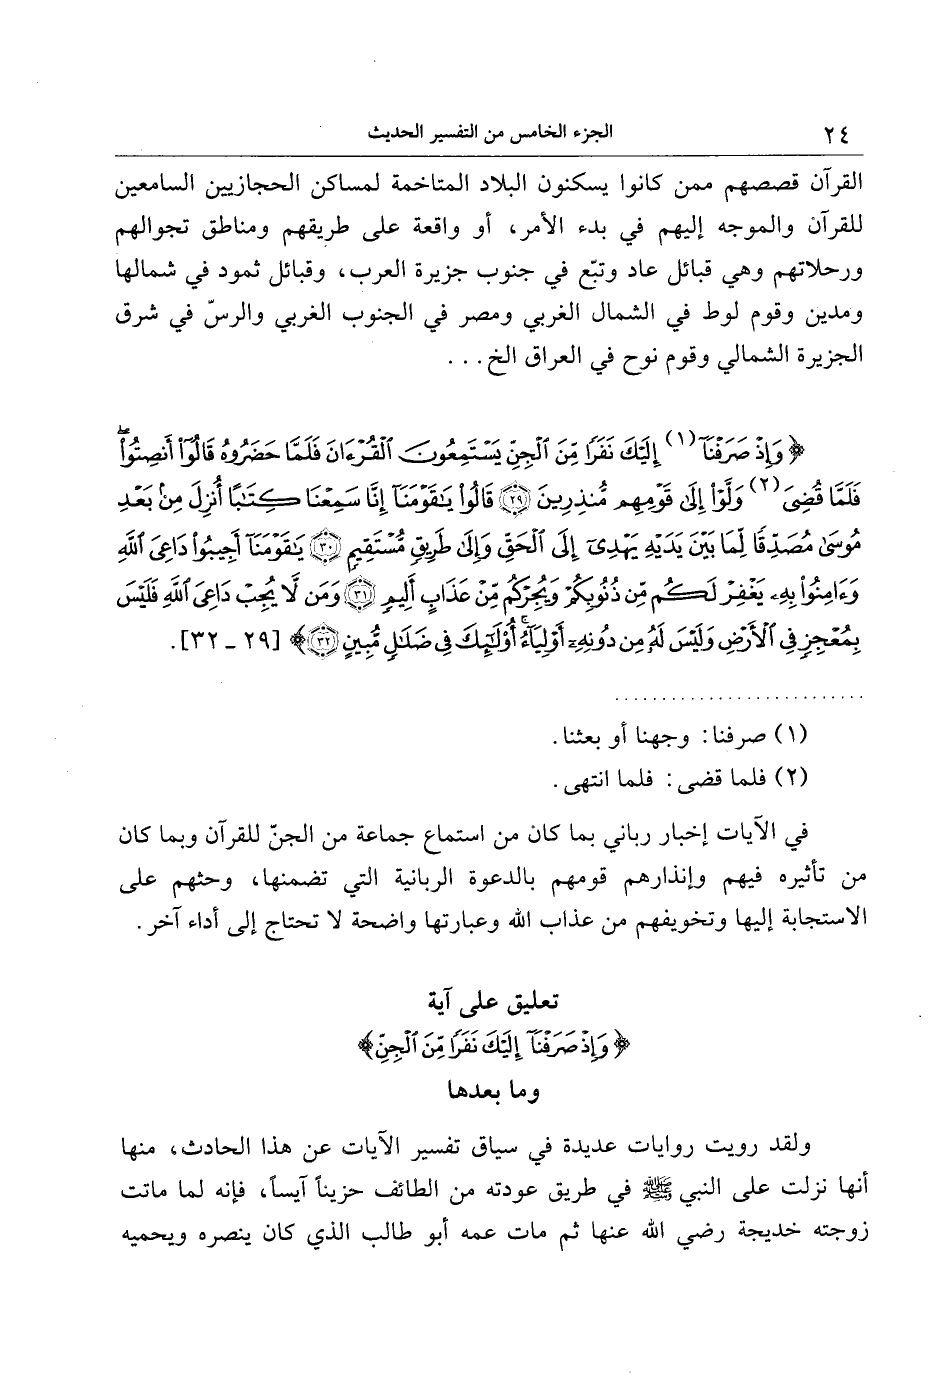 ٢٤ الجزء الخامس من التفسير الحديث
القرآن قصصهم ممن كانوا يسكنون البلاد المتاخمة لمساكن الحجازيين السامعين
للقرآن والموجه إليهم في بدء الأمر، أو واقعة على طريقهم ومناطق تجوالهم
ورحلاتهم وهي قبائل عاد وتبّع في جنوب جزيرة العرب، وقبائل ثمود في شمالها
ومدين وقوم لوط في الشمال الغربي ومصر في الجنوب الغربي والرسّ في شرق
الجزيرة الشمالي وقوم نوح في العراق الخ . . .
﴿ وَإِذْ صَرَفْنَآ (١) إِلَيْكَ نَفَرًا مِّنَ ٱلْجِنِّ يَسْتَمِعُونَ ٱلْقُرْءَانَ فَلَمَّا حَضَرُوهُ قَالُوٓا۟ أَنصِتُوا۟ ۖ
فَلَمَّا قُضِىَ (٢) وَلَّوْا۟ إِلَىٰ قَوْمِهِم مُّنذِرِينَ ٢٩ قَالُوا۟ يَٰقَوْمَنَآ إِنَّا سَمِعْنَا كِتَٰبًا أُنزِلَ مِنۢ بَعْدِ
مُوسَىٰ مُصَدِّقًا لِّمَا بَيْنَ يَدَيْهِ يَهْدِىٓ إِلَى ٱلْحَقِّ وَإِلَىٰ طَرِيقٍ مُّسْتَقِيمٍ ٣٠ يَٰقَوْمَنَآ أَجِيبُوا۟ دَاعِىَ ٱللَّهِ
وَءَامِنُوا۟ بِهِۦ يَغْفِرْ لَكُم مِّن ذُنُوبِكُمْ وَيُجِرْكُم مِّنْ عَذَابٍ أَلِيمٍ ٣١ وَمَن لَّا يُجِبْ دَاعِىَ ٱللَّهِ فَلَيْسَ
بِمُعْجِزٍ فِى ٱلْأَرْضِ وَلَيْسَ لَهُۥ مِن دُونِهِۦٓ أَوْلِيَآءُ ۚ أُو۟لَٰٓئِكَ فِى ضَلَٰلٍ مُّبِينٍ ٣٢ ﴾ [٢٩ ـ ٣٢].
(١) صرفنا: وجهنا أو بعثنا.
(٢) فلما قضى: فلما انتهى.
في الآيات إخبار رباني بما كان من استماع جماعة من الجنّ للقرآن وبما كان
من تأثيره فيهم وإنذارهم قومهم بالدعوة الربانية التي تضمنها، وحثهم على
الاستجابة إليها وتخويفهم من عذاب الله وعبارتها واضحة لا تحتاج إلى أداء آخر.
تعليق على آية
﴿ وَإِذْ صَرَفْنَآ إِلَيْكَ نَفَرًا مِّنَ ٱلْجِنِّ ﴾
وما بعدها
ولقد رويت روايات عديدة في سياق تفسير الآيات عن هذا الحادث، منها
أنها نزلت على النبي ﷺ في طريق عودته من الطائف حزيناً آيساً، فإنه لما ماتت
زوجته خديجة رضي الله عنها ثم مات عمه أبو طالب الذي كان ينصره ويحميه